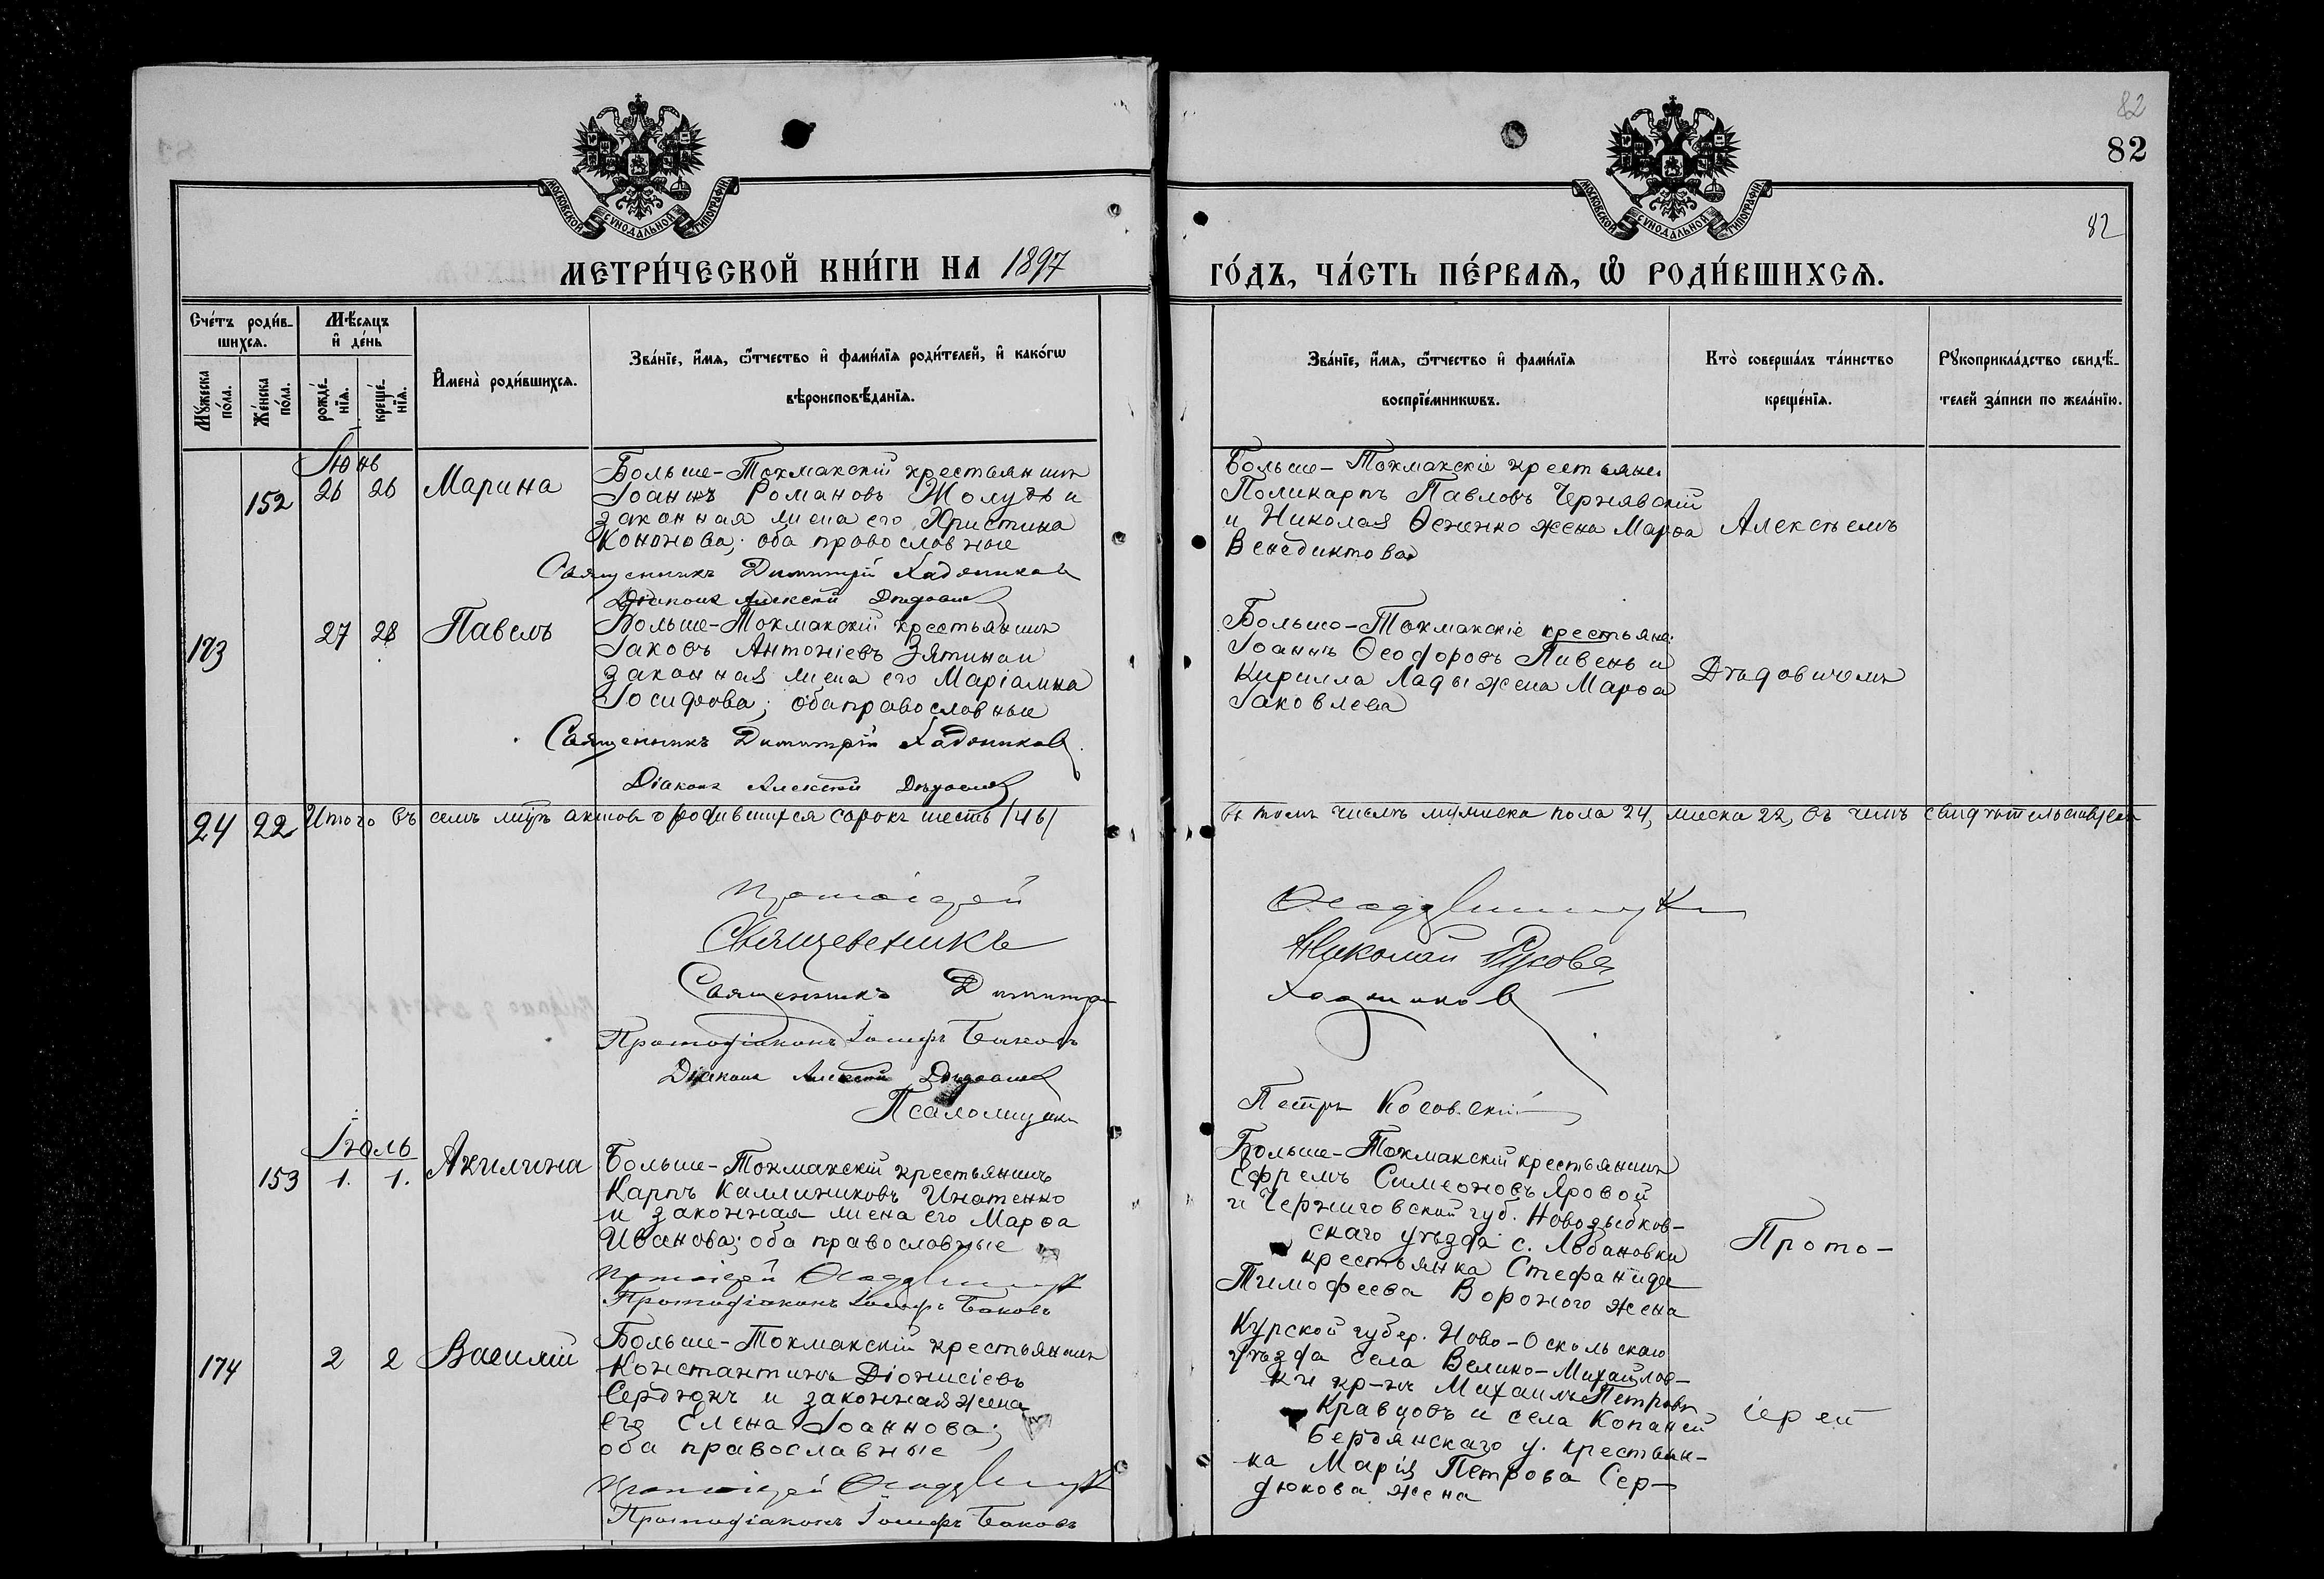 82
82
82
МОСКОВСКОЙ СУНОДАЛЬНОЙ ТИПОГРАФІИ
МОСКОВСКОЙ СУНОДАЛЬНОЙ ТИПОГРАФІИ
МЕТРИ́ЧЕСКОЙ КНИ́ГИ НА 1897
ГО́ДЪ, ЧА́СТЬ ПЕ́РВАѦ, Ѿ РОДИ́ВШИХСѦ.
Сче́тъ роди́в-
шихсѧ.
Мꙋ́жеска
по́ла.
Же́нска
по́ла.
Мѣ́сѧцъ
и҆ де́нь
рожде́-
нїѧ.
креще́-
нїѧ.
И҆мена̀ роди́вшихсѧ.
Зва́нїе, и҆́мѧ, ѻ҆́тчество и҆ фами́лїѧ роди́телей, и҆ како́гѡ
вѣроисповѣ́данїѧ.
Зва́нїе, и҆́мѧ, ѻ҆́тчество и҆ фами́лїѧ
воспрїе́мникѡвъ.
Кто̀ соверша́лъ та́инство
креще́нїѧ.
Рꙋкоприкла́дство свидѣ́-
телей за́писи по жела́нїю.
Іюнь
152 26 26 Марина
Больше-Токмакскій крестьянинъ
Іоаннъ Романовъ Жолудь и
законная жена его Христина
Кононова; оба православные
Священникъ Димитрій Хадjиковъ
Діаконъ Алексѣй Дѣдовичъ
Больше-Токмакскіе крестьяне
Поликарпъ Павловъ Чернявскій
и Николая Ѳененко жена Марѳа
Венедиктова
Алексѣемъ
173 27 28 Павелъ
Больше-Токмакскій крестьянинъ
Іаковъ Антоніевъ Зятинъ и
законная жена его Маріамна
Іосифова; оба православные
Священникъ Димитрій
Діаконъ Алексѣй Дѣдовичъ
Больше-Токмакскіе крестьяне
Іоаннъ Ѳеодоровъ Пивень и
Кирилла Лады жена Марѳа
Іаковлева
Дѣдовичемъ
24 22 Итого въ семъ мцѣ актовъ о родившихся сорокъ шесть /46/
въ томъ числѣ мужеска пола 24, женска 22, въ чемъ свидѣтельствуемъ
Протоіерей
Священникъ
Николай
Священникъ Димитрій
Протодіаконъ Іосифъ Баковъ
Діаконъ Алексѣй Дѣдовичъ
Псаломщикъ
Петръ Косовскій
Іюль
153 1. 1. Акилина
Больше-Токмакскій крестьянинъ
Карпъ Каллиниковъ Игнатенко
и законная жена его Марѳа
Иванова; оба православные
Протоіерей
Протодіаконъ Іосифъ Баковъ
Больше-Токмакскій крестьянинъ
Ефремъ Симеоновъ Яровой
и Черниговской губ. Новозыбков-
скаго уѣзда с. Лобановки
крестьянка Стефанида
Тимофеева Вороного жена
Прото-
174 2 2 Василій
Больше-Токмакскій крестьянинъ
Константинъ Діонисіевъ
Сердюкъ и законная жена
его Елена Іоаннова;
оба православные
Протоіерей
Протодіаконъ Іосифъ Баковъ
Курской губер. Ново-Оскольскаго
уѣзда села Велико-Михайлов-
ки кр-нъ Михаилъ Петровъ
Кравцовъ и села Копаней
Бердянскаго у. крестьян-
ка Марія Петрова Сер-
дюкова жена
іерей